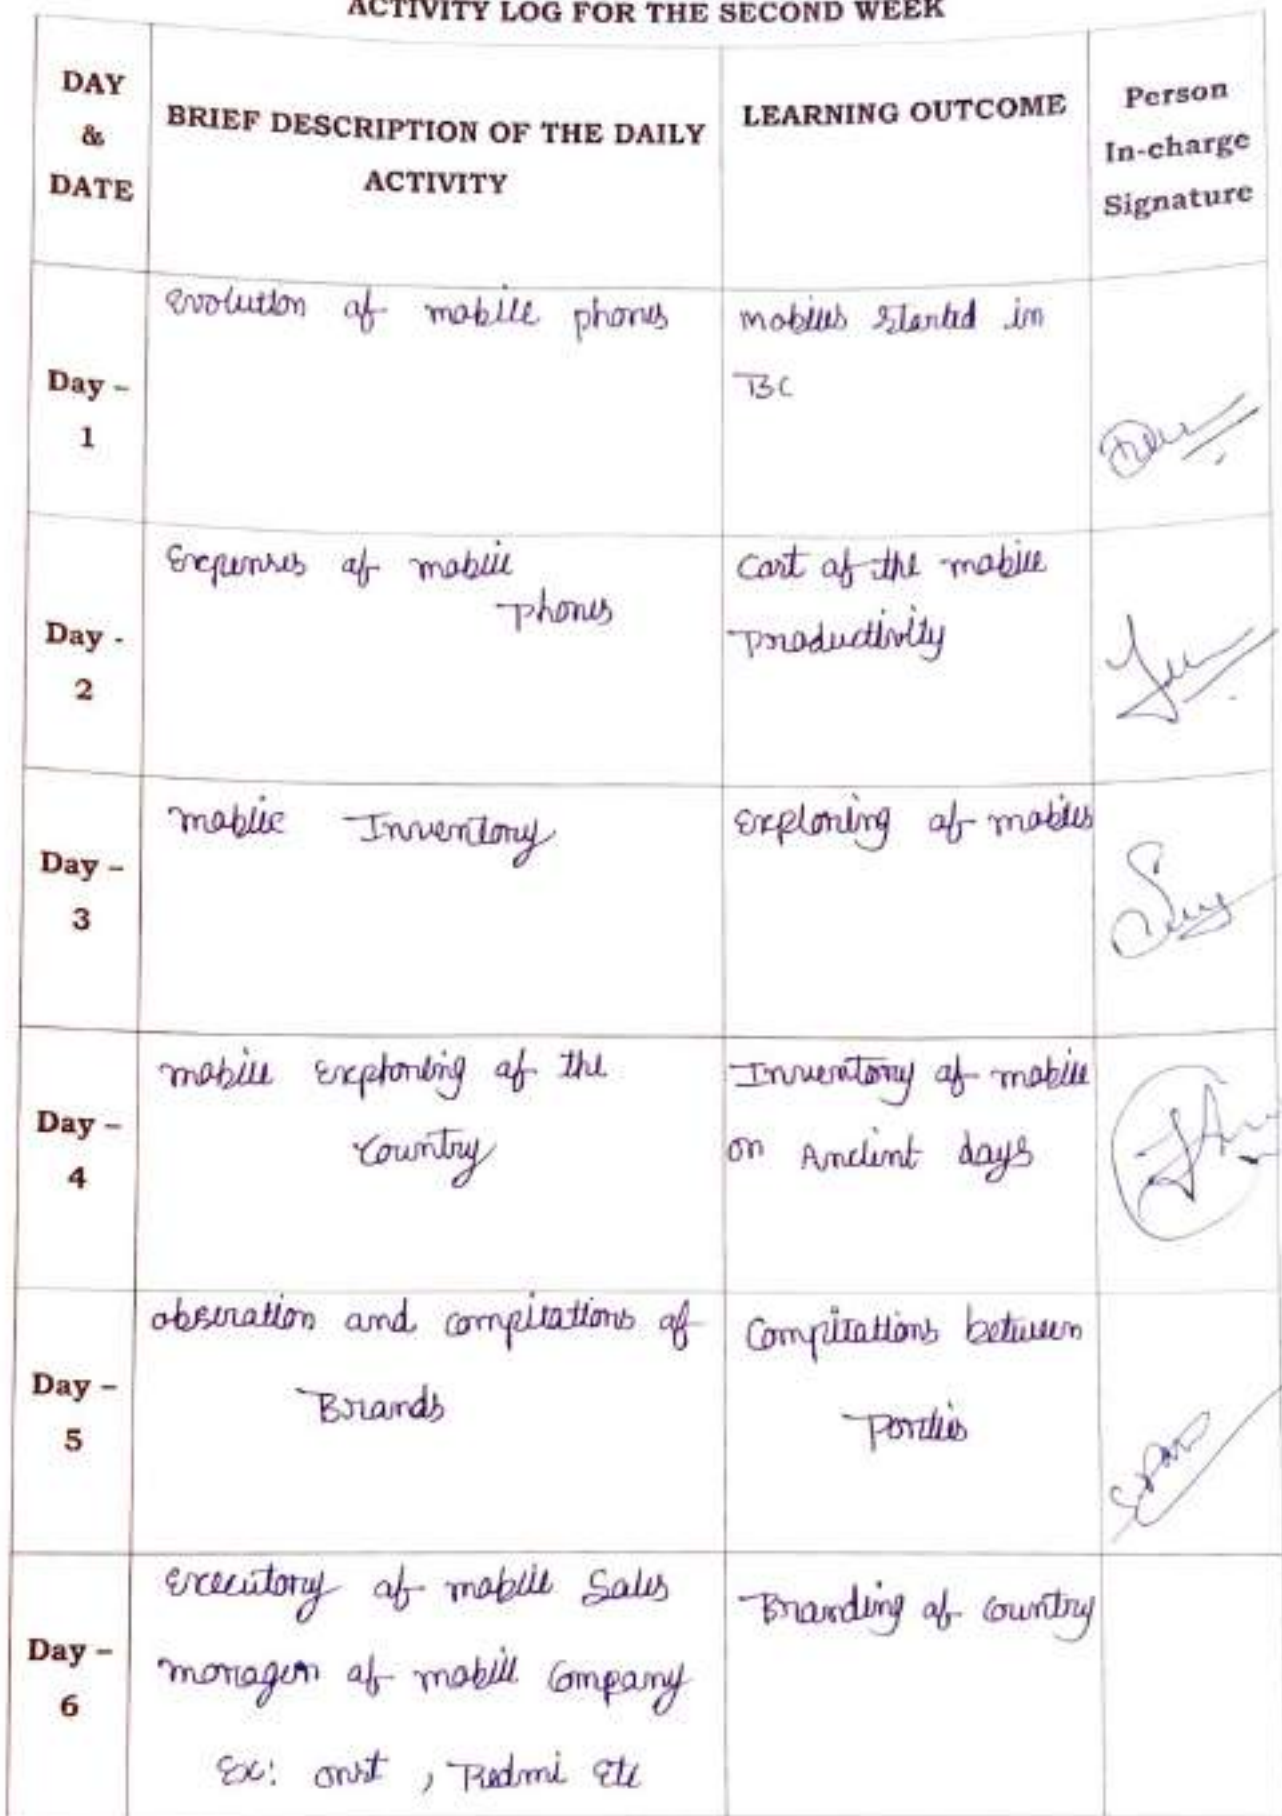 ACTIVITY LOG FOR THE SECOND WEEK
DAY
&
DATE
BRIEF DESCRIPTION OF THE DAILY
ACTIVITY
LEARNING OUTCOME
Person
In-charge
Signature
Day –
1
Evolution of mobile phones
mobiles started in
BC
Day -
2
Expenses of mobile
phones
Cost of the mobile
productivity
Day –
3
mobile Inventory
Exploring of mobiles
Day –
4
mobile Exploring of the
Country
Inventory of mobile
on Ancient days
Day –
5
obseration and compitations of
Brands
Compitations between
Day –
6
Executory of mobile Sales
manager of mobile Company
Ex: , Redmi Etc
Branding of country